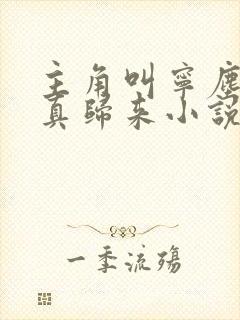 主角叫寧塵
真歸来小說
一季流殤